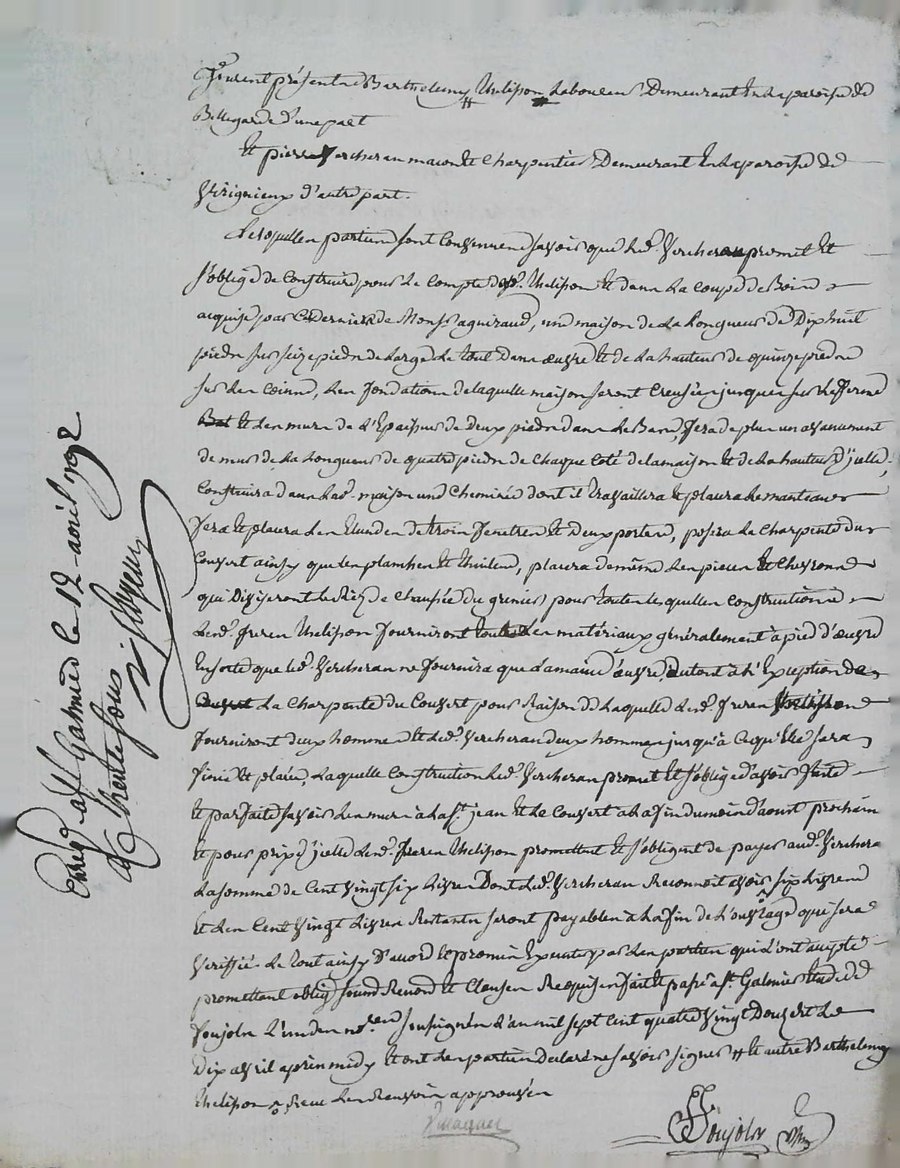 Furent présents Barthelemy Thelison Laboureur Demeurant En La paroisse de
Bellegarde d'une part
Et pierre Vercheran macon Et Charpentier Demeurant En La paroisse de
Virignieux d'autre part.
Lesquelles parties sont Convenues savoir que Led. Vercheran promet Et
s'oblige de Construire pour Le Compte dud. Thelison Et dans La Coupe de Bois
acquise par Ce Dernier de Mons. aguiraud, une maison de La Longueur de Dix huit
pieds sur seize pieds de Large Le tout Dans œuvre Et de La hauteur de quinze pieds
sur Les Coins, Les fondations de laquelle maison seront Creusées jusques sur Le ferme
Et Les murs de L'Epaisseur de Deux pieds dans Le Bas fera de plus un
de mur de La Longueur de quatre pieds de Chaque Coté de la maison Et de La hauteur d'jcelle,
Construira dans Lad. maison une Cheminée dont il travaillera Et placera Le manteau
fera Et placera Les de trois fenetres Et Deux portes, posera La Charpente du
Couvert ainsy que Les planches Et thuiles, placera de même Les pieces Et Chevrons
qui Diviseront Le Rez de Chaussée du grenier pour toutes lesquelles Constructions
Led. freres Thelison fourniront Les matériaux généralement à pied d'œuvre
En sorte que Led. Vercheran ne fournira que sa main d'œuvre, Du tout à L'Exception de
La Charpente du Couvert pour Raison De Laquelle Led. freres Thelison
fourniront deux hommes Et Led. Vercheran deux hommes jusqu'à Ce qu'Elle sera
finie Et placée, Laquelle Construction Led. Vercheran promet Et s'oblige d'avoir faite
Et parfaite savoir Les murs à La St. jean Et Le Couvert à La fin du mois d'aout prochain
Et pour prix d'jcelle Led. freres Thelison promettent Et s'obligent de payer aud. Vercheran
La somme de Cent Vingt six Livres Dont Led. Vercheran Reconnoit avoir six Livres
Et Les Cent Vingt Livres Restants seront payables à La fin de L'ouvrage qui sera
Verifiée Le tout ainsy D'accord Et promis Executer par Les parties qui L'ont accepté
promettant oblig. soumis Renon. Et Clauses Requises fait Et passé a St. Galmier Etude de
Poujols L'un des no.res soussignés L'an mil sept Cent quatre Vingt Douze Et Le
Dix avril après midy Et ont Les parties Declaré ne savoir signer # Et autre Barthelemy
Thelison Les Renvoir approuvés
Poujols
Enreg. a St Galmier le 12 avril 1792
de trente sous